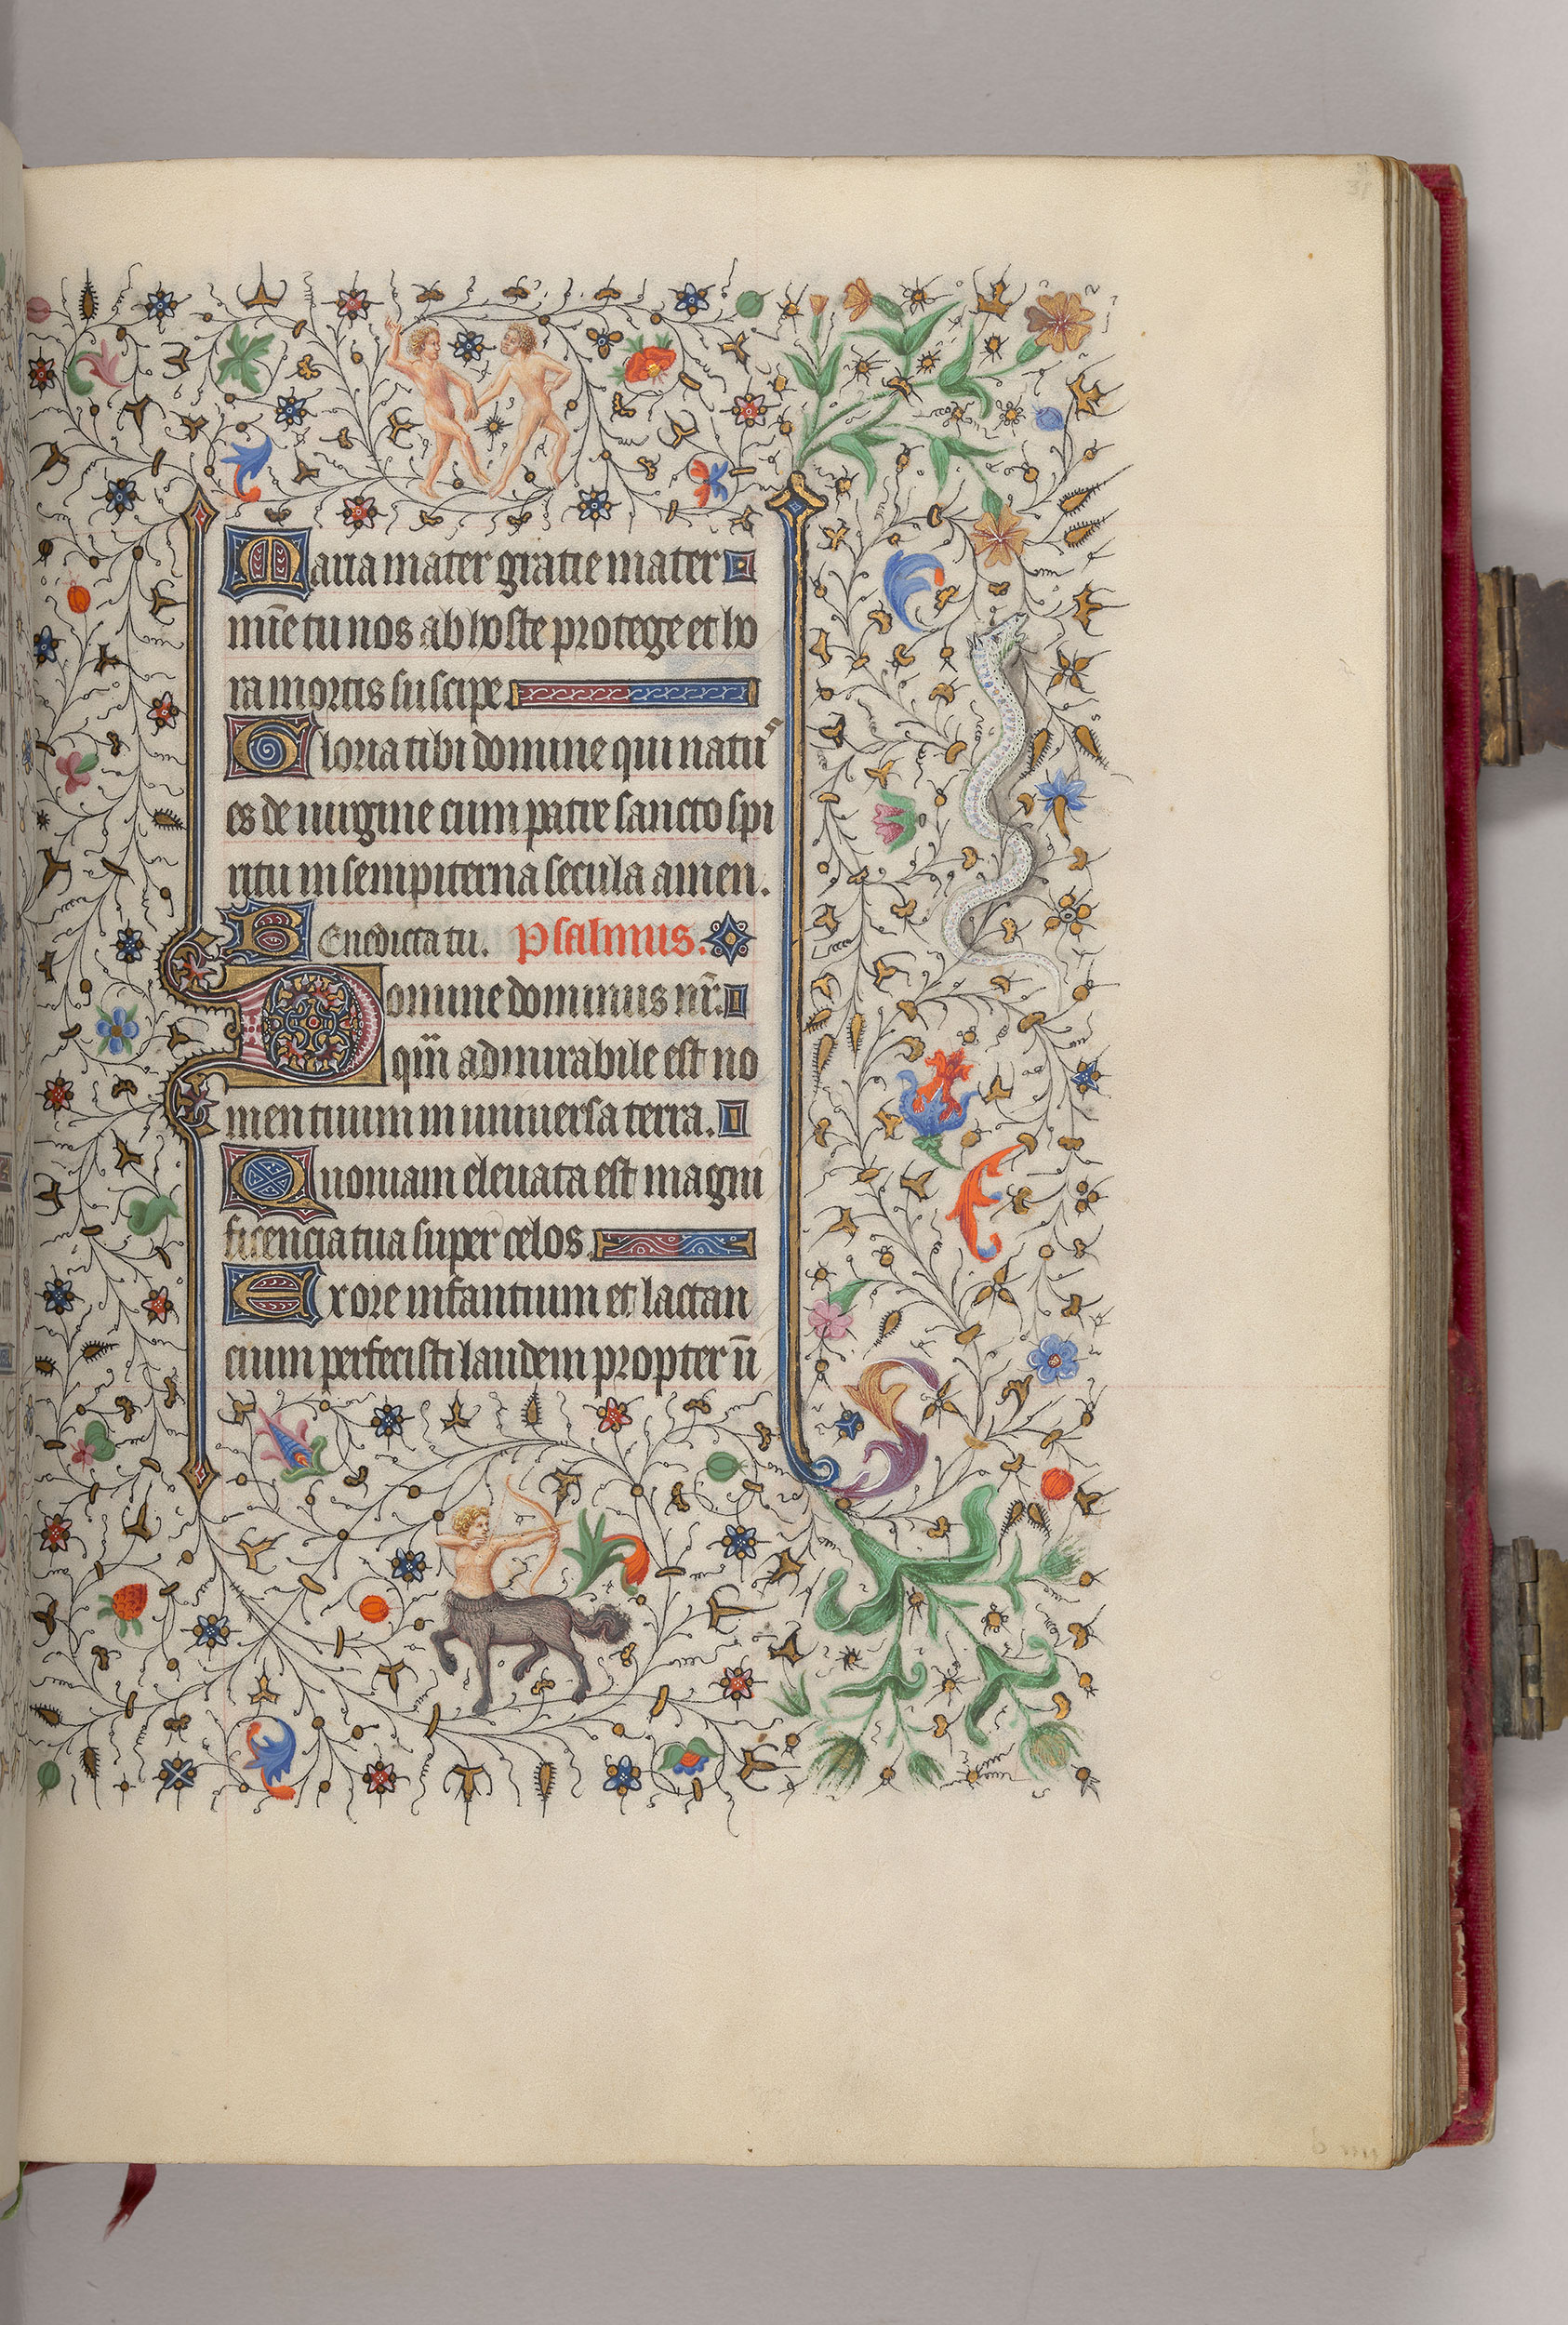 Maria mater gratie mater
mĩe tu nos ab hoste protege et ho
ra mortis suscipe.
Gloria tibi domine qui natuˢ
es de uirgine cum patre sancto spi
ritu in sempiterna secula amen.
Benedicta tu. Psalmus.
Domine dominus nr̄.
qm̄ admirabile est no
men tuum in uniuersa terra.
Quoniam eleuata est magni
ficencia tua super celos.
Ex ore infantium et lactan
cium perfecisti laudem propter in̄